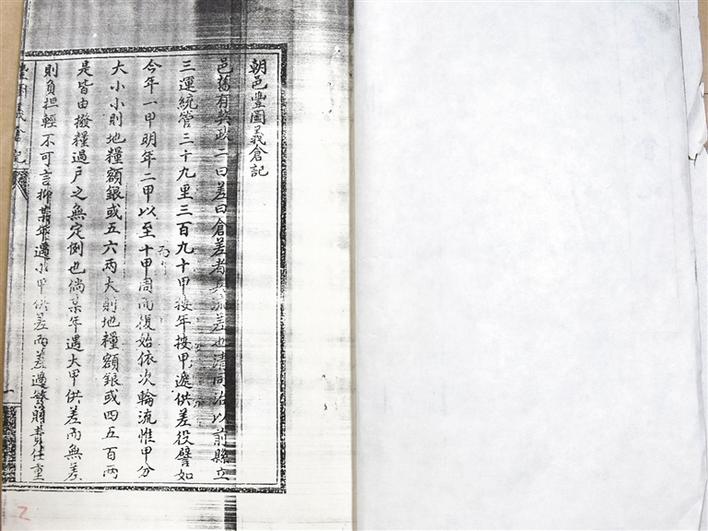 朝邑豐圖義倉記
邑舊有 政二曰差曰倉差者 差也清同治以前縣立
三運統管三十九里三百九十甲按年按甲遞供差役譬如
今年一甲明年二甲以至十甲周而復始依次輪流惟甲分
大小小則地糧額銀或五六兩大則地糧額銀或四五百兩
是皆由撥糧過戶之無定例也倘某年遇大甲供差而無差
則負担輕不可言抑某年遇小甲供差而差過繁賠責任重
豐圖義倉記
一
2